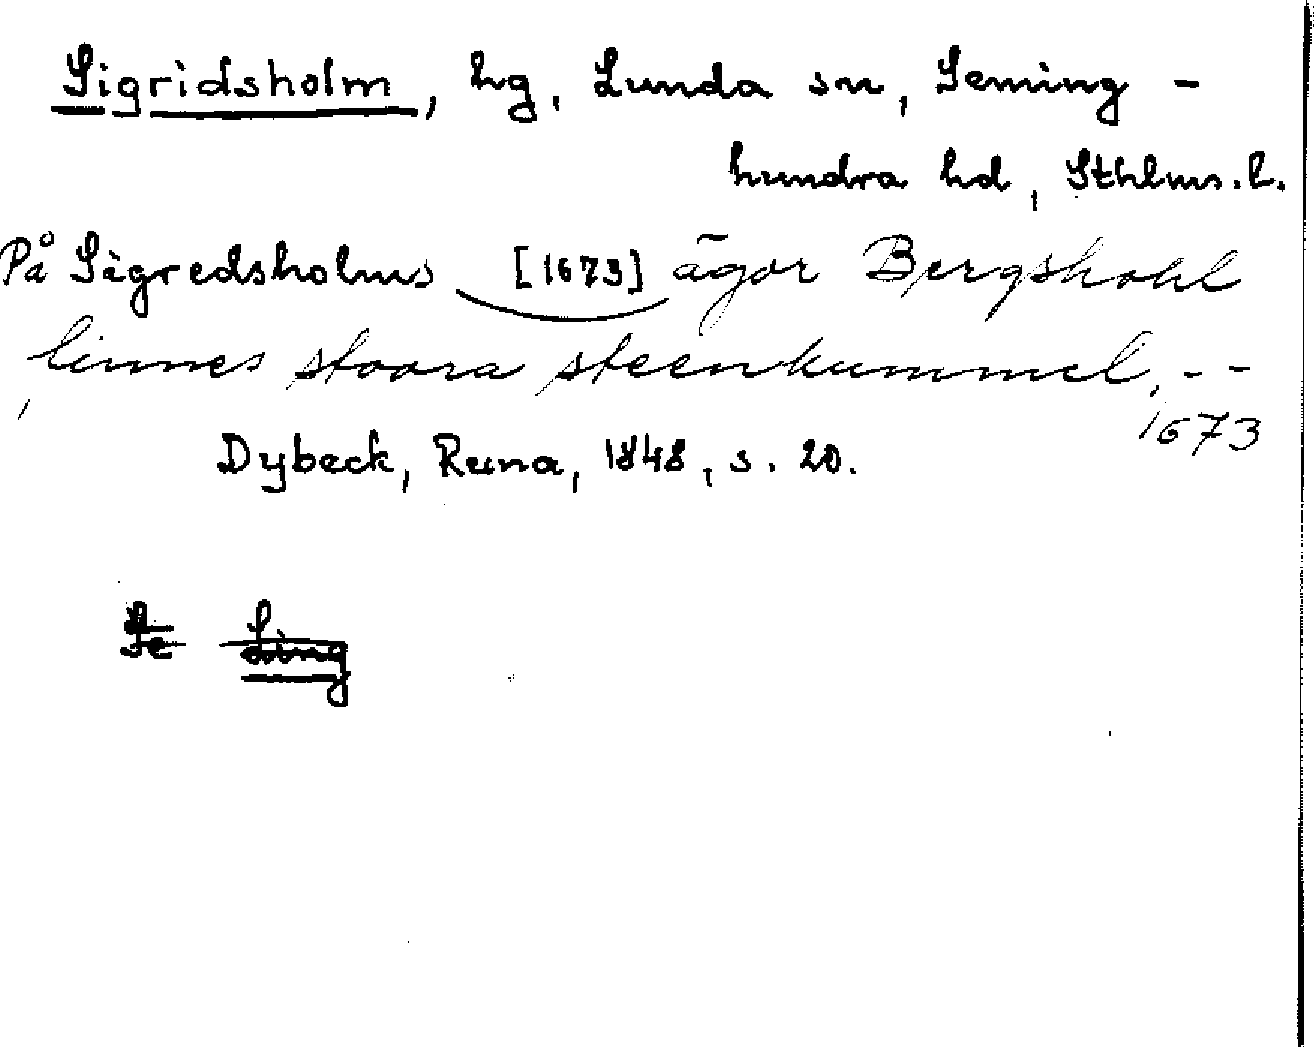 Sigridsholm, hg, Lunda sn, Seming-
hundra hd, Sthlms. l.
På Sigredsholms [1673] ägor Bergshohl
finnes stoora steenkummel, --
1673
Dybeck, Runa, 1848, s. 20.
Se Ling